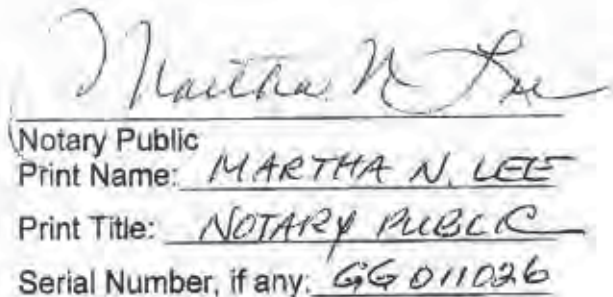 Martha N Lee
Notary Public
Print Name: MARTHA N. LEE
Print Title: NOTARY PUBLIC
Serial Number, if any: GG 011026